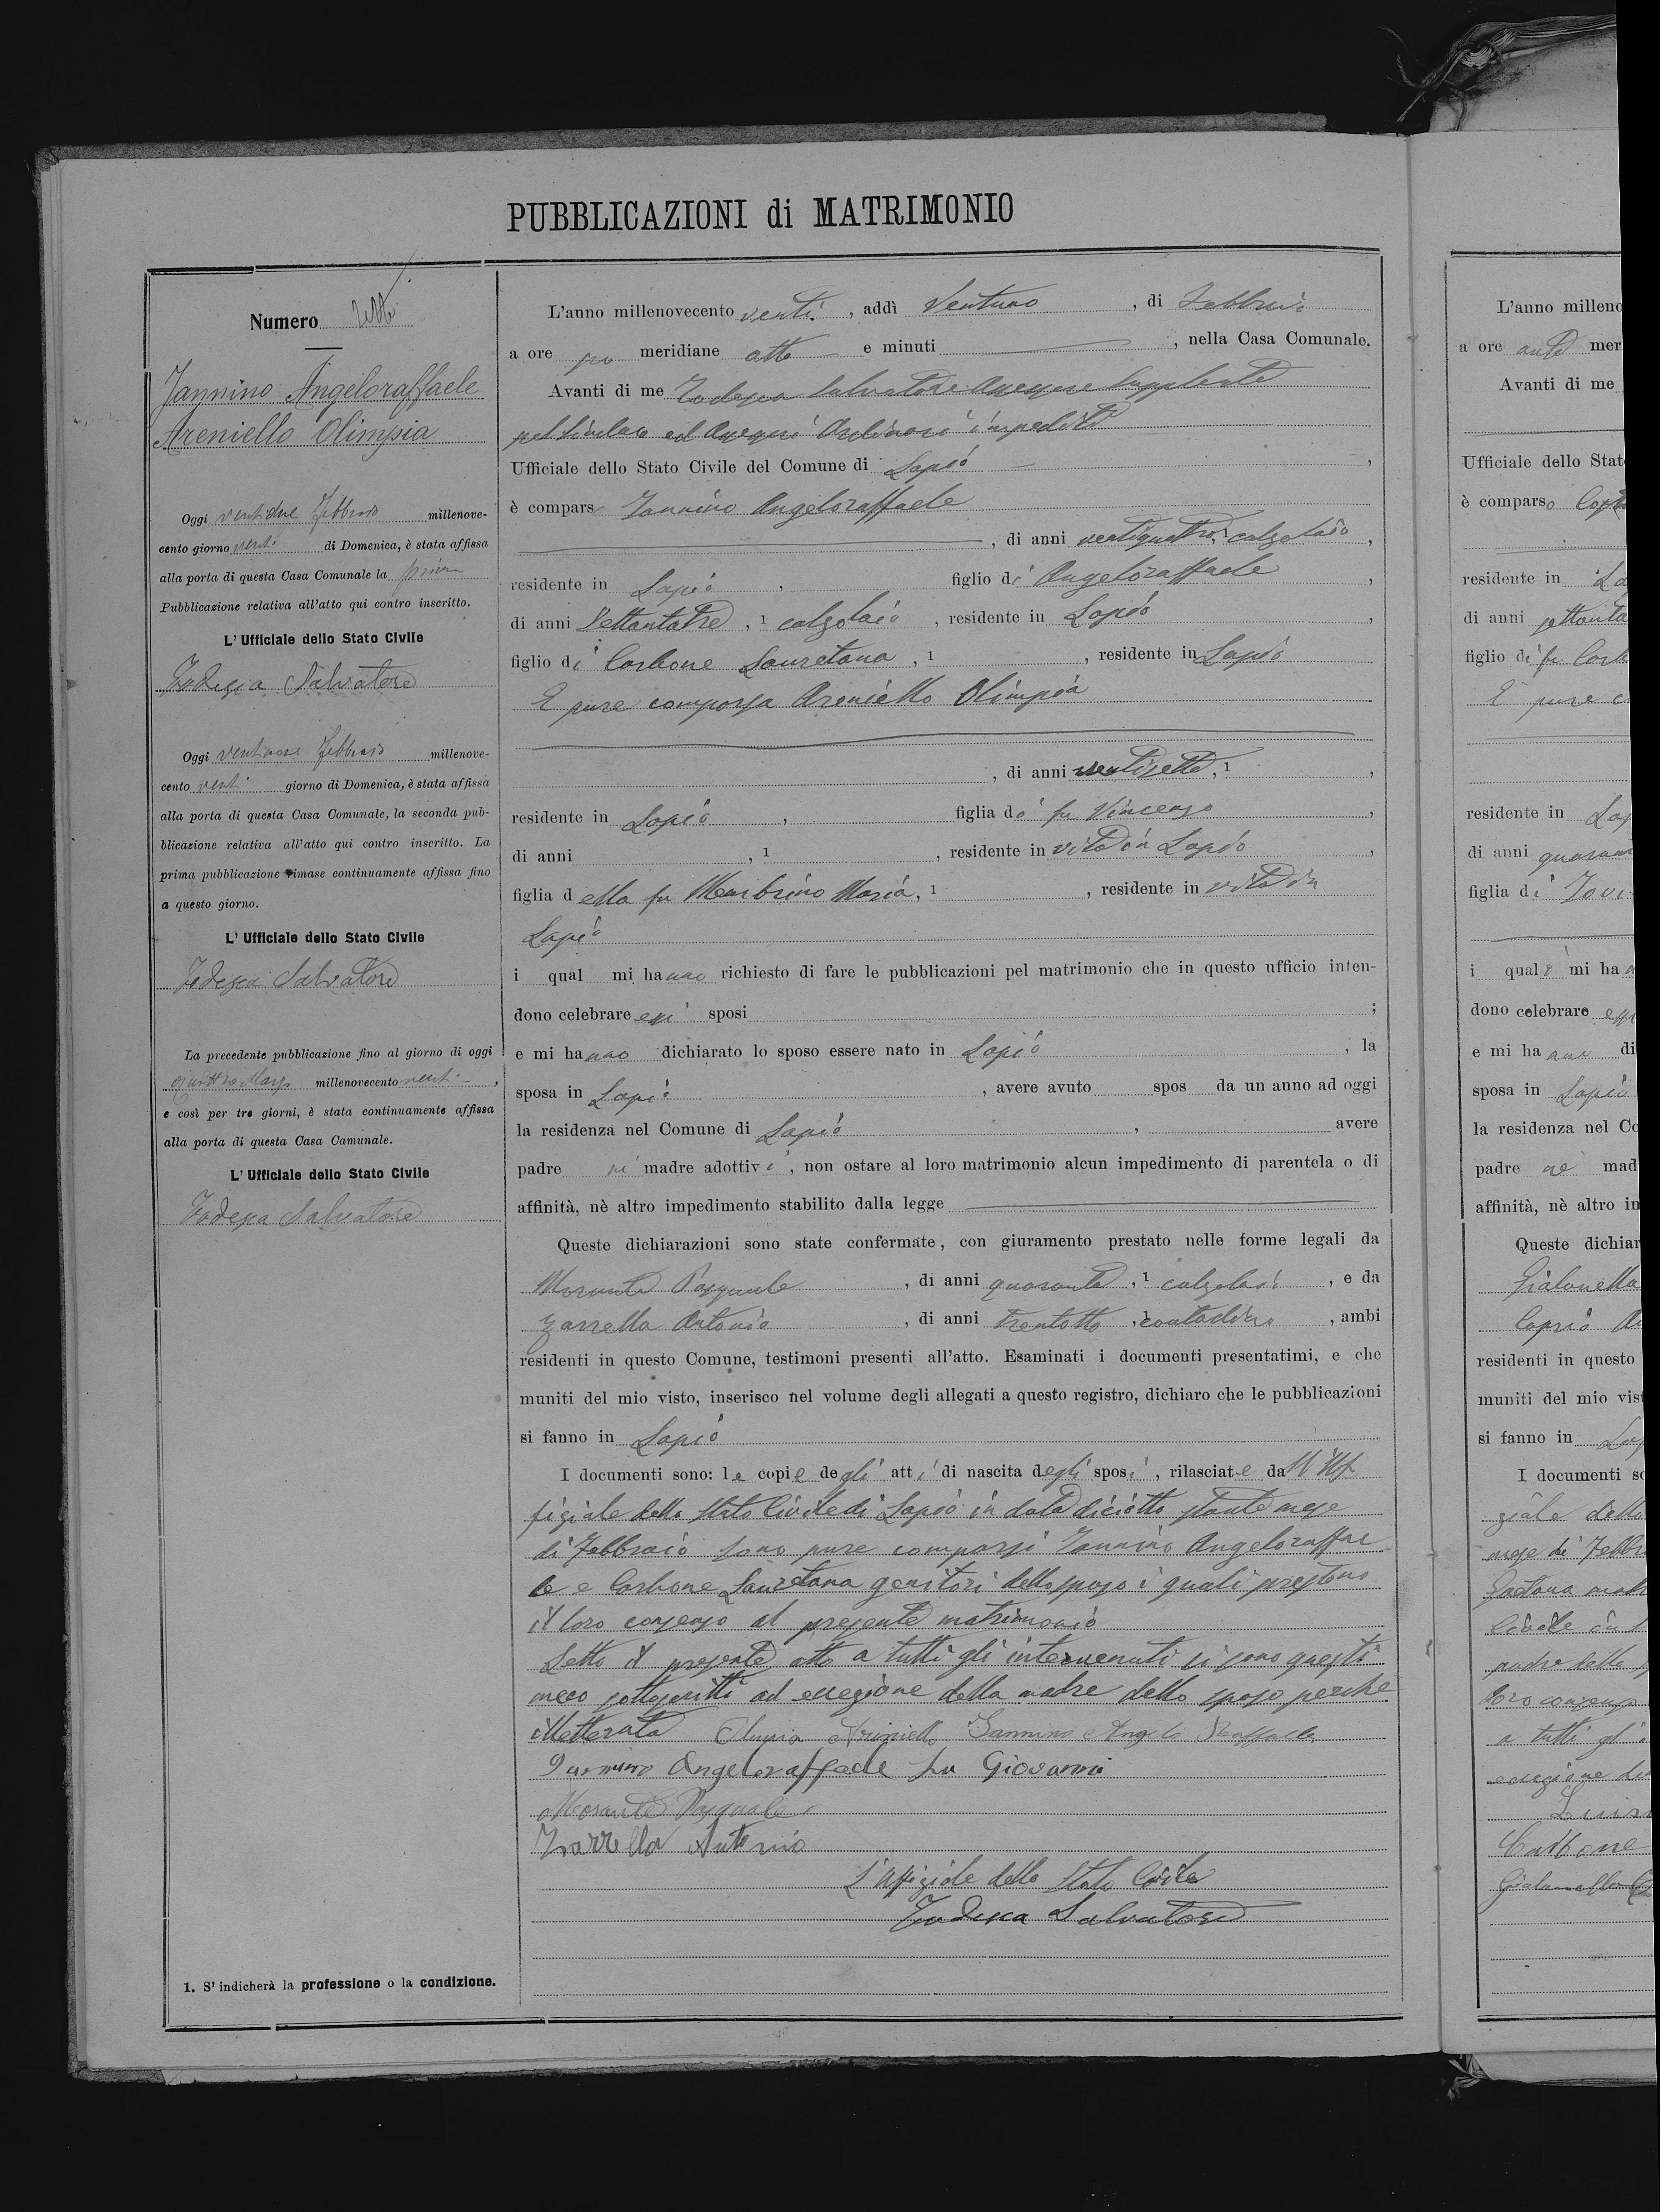 PUBBLICAZIONI di MATRIMONIO
Numero
Jannino Angeloraffaele
Areniello Olimpia
Oggi ventidue Febbraio millenove-
cento giorno venti di Domenica, è stata affissa
alla porta di questa Casa Comunale la prima
Pubblicazione relativa all'atto qui contro inscritto.
L'Ufficiale dello Stato Civile
Todesca Salvatore
Oggi ventinove Febbraio millenove-
cento venti giorno di Domenica, è stata affissa
alla porta di questa Casa Comunale, la seconda pub-
blicazione relativa all'atto qui contro inscritto. La
prima pubblicazione rimase continuamente affissa fino
a questo giorno.
L'Ufficiale dello Stato Civile
Todesca Salvatore
La precedente pubblicazione fino al giorno di oggi
quattro Marzo millenovecento venti,
e così per tre giorni, è stata continuamente affissa
alla porta di questa Casa Camunale.
L'Ufficiale dello Stato Civile
Todesca Salvatore
1. S'indicherà la professione o la condizione.
L'anno millenovecento venti, addì Ventuno, di Febbraio
a ore po meridiane otto e minuti, nella Casa Comunale.
Avanti di me Todesca Salvatore Assessore Supplente
pel Sindaco ed Assessori Ordinari impediti
Ufficiale dello Stato Civile del Comune di Lapio,
è compars Jannino Angeloraffaele
, di anni ventiquattro, calzolaio,
residente in Lapio, figlio di Angeloraffaele,
di anni Settantatre, 1 calzolaio, residente in Lapio,
figlio di Carbone Lauretana, 1, residente in Lapio
E pure comparsa Areniello Olimpia
, di anni ventisette, 1,
residente in Lapio, figlia di fu Vincenzo,
di anni, 1, residente in vita in Lapio,
figlia della fu Membrino Maria, 1, residente in vita in
Lapio
i qual mi hanno richiesto di fare le pubblicazioni pel matrimonio che in questo ufficio inten-
dono celebrare essi sposi;
e mi hanno dichiarato lo sposo essere nato in Lapio, la
sposa in Lapio, avere avuto spos da un anno ad oggi
la residenza nel Comune di Lapio, avere
padre nè madre adottivi, non ostare al loro matrimonio alcun impedimento di parentela o di
affinità, nè altro impedimento stabilito dalla legge
Queste dichiarazioni sono state confermate, con giuramento prestato nelle forme legali da
Morante Pasquale, di anni quaranta, 1 calzolaio, e da
Zarrella Antonio, di anni trentotto, 1 contadino, ambi
residenti in questo Comune, testimoni presenti all'atto. Esaminati i documenti presentatimi, e che
muniti del mio visto, inserisco nel volume degli allegati a questo registro, dichiaro che le pubblicazioni
si fanno in Lapio
I documenti sono: le copie degli atti di nascita degli sposi, rilasciate dall'Uf
fiziale dello Stato Civile di Lapio in data diciotto stante mese
di Febbraio sono pure comparsi Jannino Angeloraffae
le e Carbone Lauretana genitori dello sposo i quali prestano
il loro consenso al presente matrimonio
Letto il presente atto a tutti gli intervenuti si sono questi
meco sottoscritti ad eccezione della madre dello sposo perche
illetterata Olimpia Areniello Jannino Angelo Raffaele
Jannino Angeloraffaele fu Giovanni
Morante Pasquale
Zarrella Antonio
L'Uffiziale dello Stato Civile
Todesca Salvatore
L'anno milleno
a ore ante mer
Avanti di me
Ufficiale dello Stat
è comparso
residente in La
di anni settanta
figlio di fu Carb
E pure c
residente in Lap
di anni quaran
figlia di
i quali mi ha
dono celebrare
e mi hann di
sposa in Lapio
la residenza nel Co
padre nè mad
affinità, nè altro in
Queste dichiar
Gialonella
Caprio
residenti in questo
muniti del mio vist
si fanno in Lap
I documenti so
ziale dello
mese di Febbr
Civile in
padre della
loro consenso
a tutti gl
eccezione de
Carbone